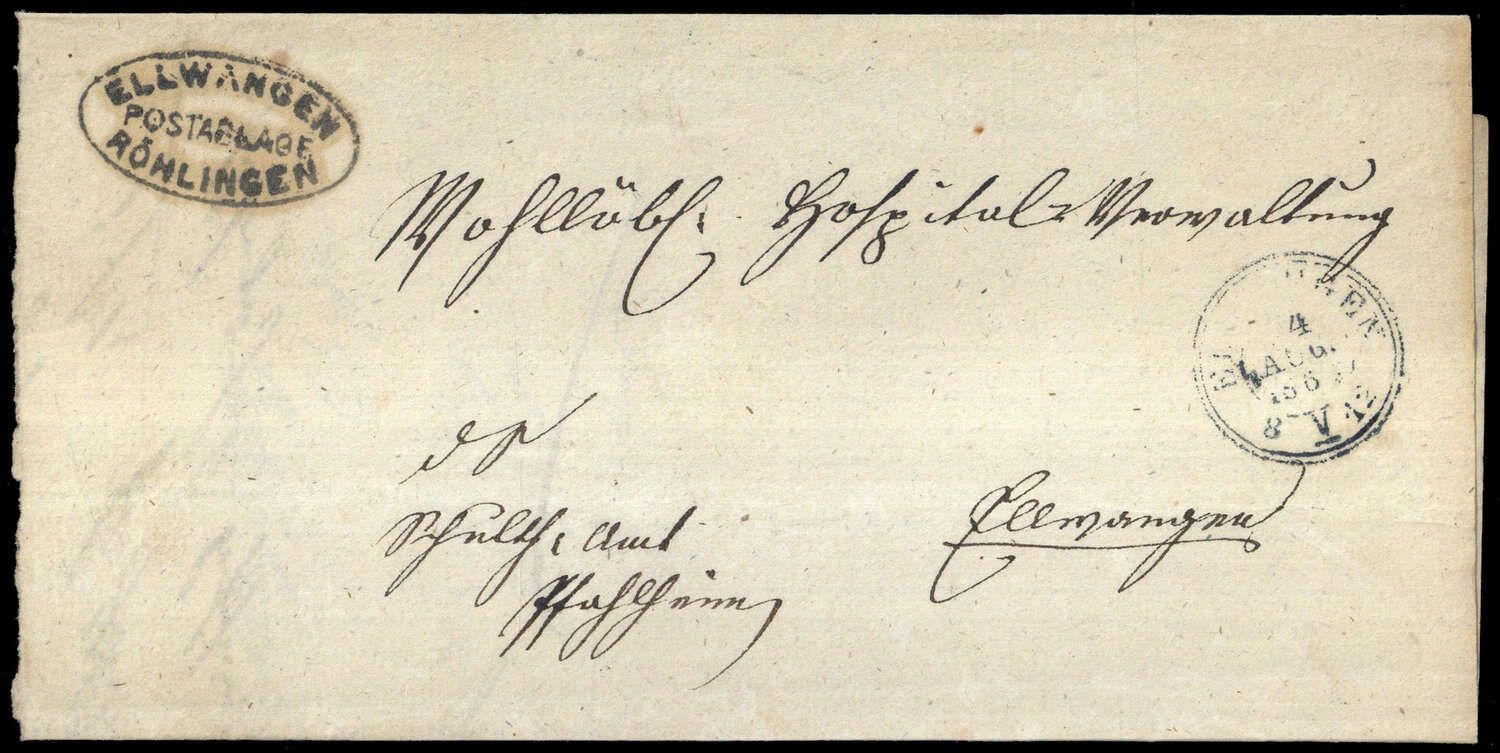 ELLWANGEN
POSTABLAGE
RÖHLINGEN
Wohllöbl. Hospital-Verwaltung
4
AUG.
186
8 V 12
Ellwangen
Schulth. Amt
Pfahlheim